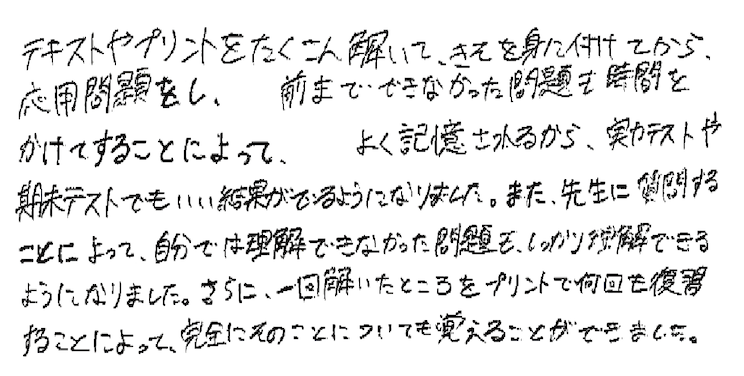 テキストやプリントをたくさん解いて、きそを身に付けてから、
応用問題をし、 前までできなかった問題も時間を
かけてすることによって、 よく記憶されるから、実力テストや
期末テストでもいい結果がでるようになりました。また、先生に質問する
ことによって、自分では理解できなかった問題も、しっかり理解できる
ようになりました。さらに、一回解いたところをプリントで何回も復習
することによって、完全にそのことについても覚えることができました。